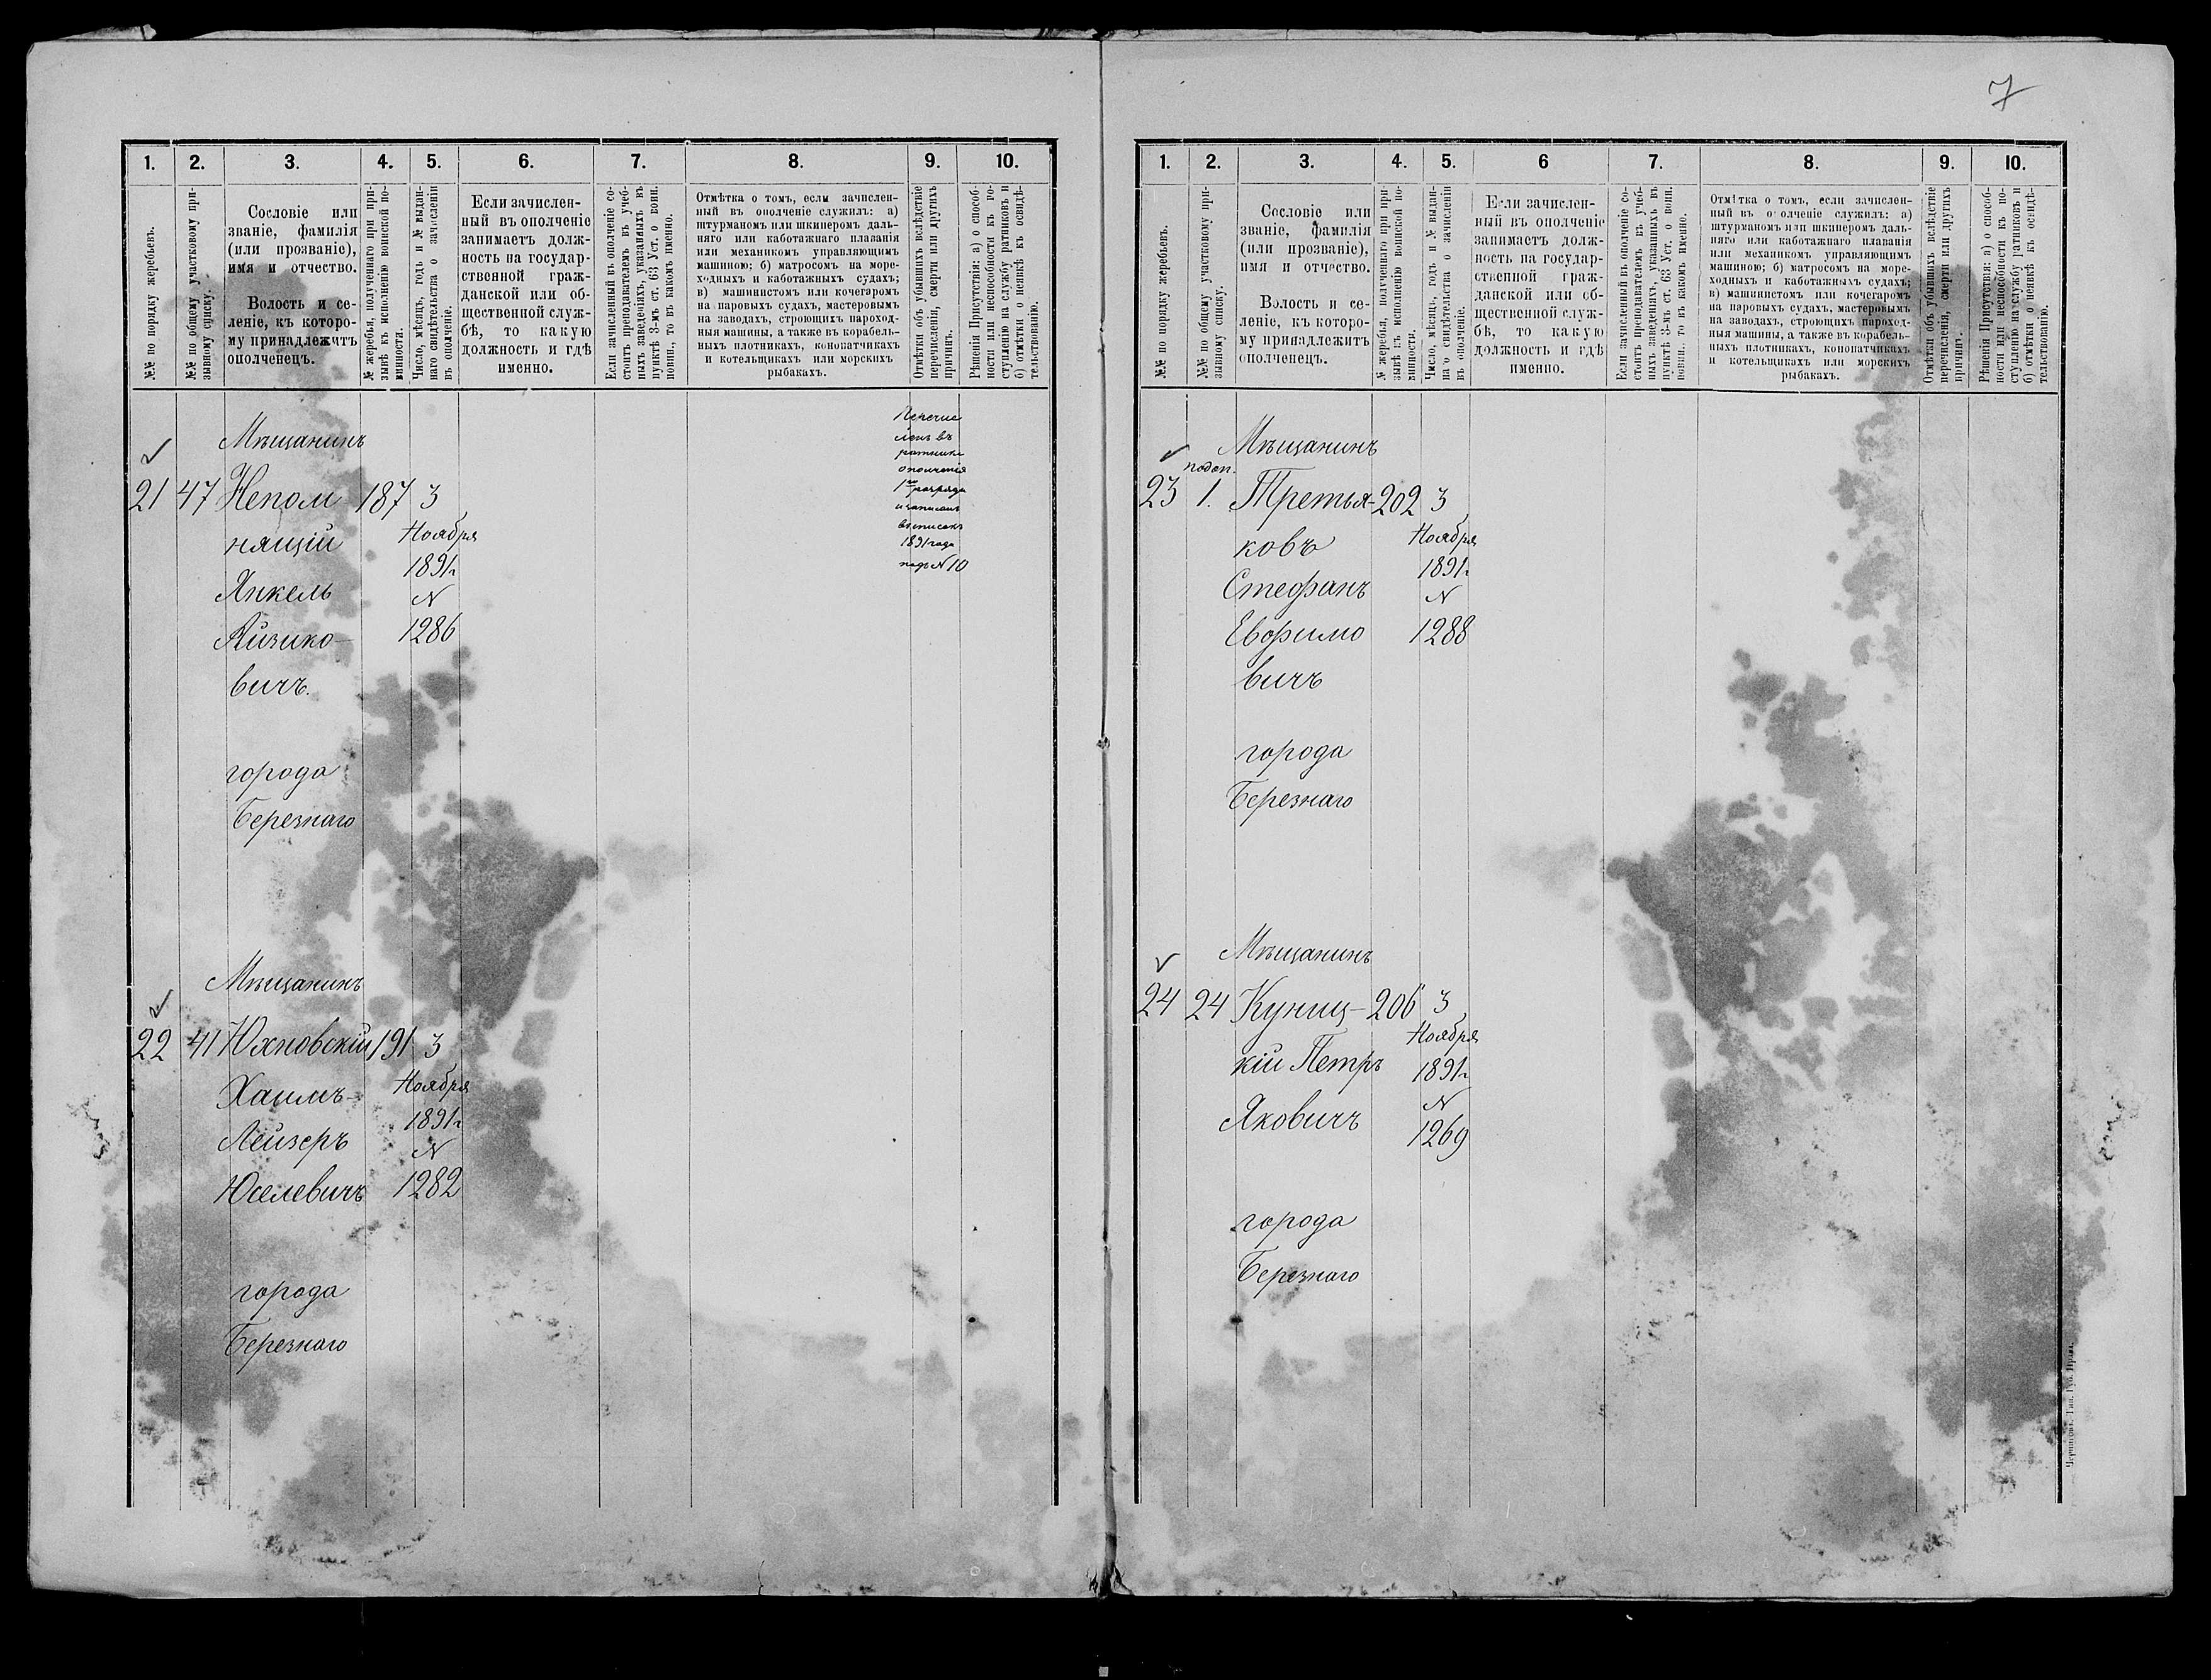 7
1. 2. 3. 4. 5. 6. 7. 8. 9. 10.
№№ по порядку жеребьевъ.
№№ по общему участковому при-
зывному списку.
Сословіе или
званіе, фамилія
(или прозваніе),
имя и отчество.
Волость и се-
леніе, къ которо-
му принадлежитъ
ополченецъ.
№ жеребья, полученнаго при при-
зывѣ къ исполненію воинской по-
винности.
Число, мѣсяцъ, годъ и № выдан-
наго свидѣтельства о зачисленіи
въ ополченіе.
Если зачислен-
ный въ ополченіе
занимаетъ долж-
ность на государ-
ственной граж-
данской или об-
щественной служ-
бѣ, то какую
должность и гдѣ
именно.
Если зачисленный въ ополченіе со-
стоитъ преподавателемъ въ учеб-
ныхъ заведеніяхъ, указанныхъ въ
пунктѣ 3-мъ ст. 63 Уст. о воин.
повин., то въ какомъ именно.
Отмѣтка о томъ, если зачислен-
ный въ ополченіе служилъ: а)
штурманомъ или шкиперомъ даль-
няго или каботажнаго плаванія
или механикомъ управляющимъ
машиною; б) матросомъ на море-
ходныхъ и каботажныхъ судахъ;
в) машинистомъ или кочегаромъ
на паровыхъ судахъ, мастеровымъ
на заводахъ, строющихъ пароход-
ныя машины, а также въ корабель-
ныхъ плотникахъ, конопатчикахъ
и котельщикахъ или морскихъ
рыбакахъ.
Отмѣтки объ убывшихъ вслѣдствіе
перечисленія, смерти или другихъ
причинъ.
Рѣшенія Присутствія: а) о способ-
ности или неспособности къ по-
ступленію на службу ратниковъ и
б) отмѣтки о неявкѣ къ освидѣ-
тельствованію.
Мѣщанинъ
21 47 Непом- 187 3
нящій Ноября
1891г
Янкель N
Айзико- 1286
вичъ.
города
Березнаго
Перечис
ленъ въ
ратники
ополченія
1го разряда
и записанъ
въ списокъ
1891 года
подъ N 10
Мѣщанинъ
22 41 Юхновскій 191 3
Хаимъ- Ноября
1891г
Лейзеръ N
Юселевичъ 1282
города
Березнаго
1. 2. 3. 4. 5. 6 7. 8. 9. 10.
№№ по порядку жеребьевъ.
№№ по общему участковому при-
зывному списку.
Сословіе или
званіе, фамилія
(или прозваніе),
имя и отчество.
Волость и се-
леніе, къ которо-
му принадлежитъ
ополченецъ.
№ жеребья, полученнаго при при-
зывѣ къ исполненію воинской по-
винности.
Число, мѣсяцъ, годъ и № выдан-
наго свидѣтельства о зачисленіи
въ ополченіе.
Если зачислен-
ный въ ополченіе
занимаетъ долж-
ность на государ-
ственной граж-
данской или об-
щественной служ-
бѣ, то какую
должность и гдѣ
именно.
Если зачисленный въ ополченіе со-
стоитъ преподавателемъ въ учеб-
ныхъ заведеніяхъ, указанныхъ въ
пунктѣ 3-мъ ст. 63 Уст. о воин.
повин., то въ какомъ именно.
Отмѣтка о томъ, если зачислен-
ный въ ополченіе служилъ: а)
штурманомъ или шкиперомъ даль-
няго или каботажнаго плаванія
или механикомъ управляющимъ
машиною; б) матросомъ на море-
ходныхъ и каботажныхъ судахъ;
в) машинистомъ или кочегаромъ
на паровыхъ судахъ, мастеровымъ
на заводахъ, строющихъ пароход-
ныя машины, а также въ корабель-
ныхъ плотникахъ, конопатчикахъ
и котельщикахъ или морскихъ
рыбакахъ.
Отмѣтки объ убывшихъ вслѣдствіе
перечисленія, смерти или другихъ
причинъ.
Рѣшенія Присутствія: а) о способ-
ности или неспособности къ по-
ступленію на службу ратниковъ и
б) отмѣтки о неявкѣ къ освидѣ-
тельствованію.
Мѣщанинъ
подоп.
23 1. Третья- 202 3
ковъ Ноября
1891г
Стефанъ N
Евфимо 1288
вичъ
города
Березнаго
Мѣщанинъ
24 24 Куниц- 206 3
Ноября
кій Петръ 1891г
N
Яковичъ 1269
города
Березнаго
Черниговъ. Тип. Губ. Правл.